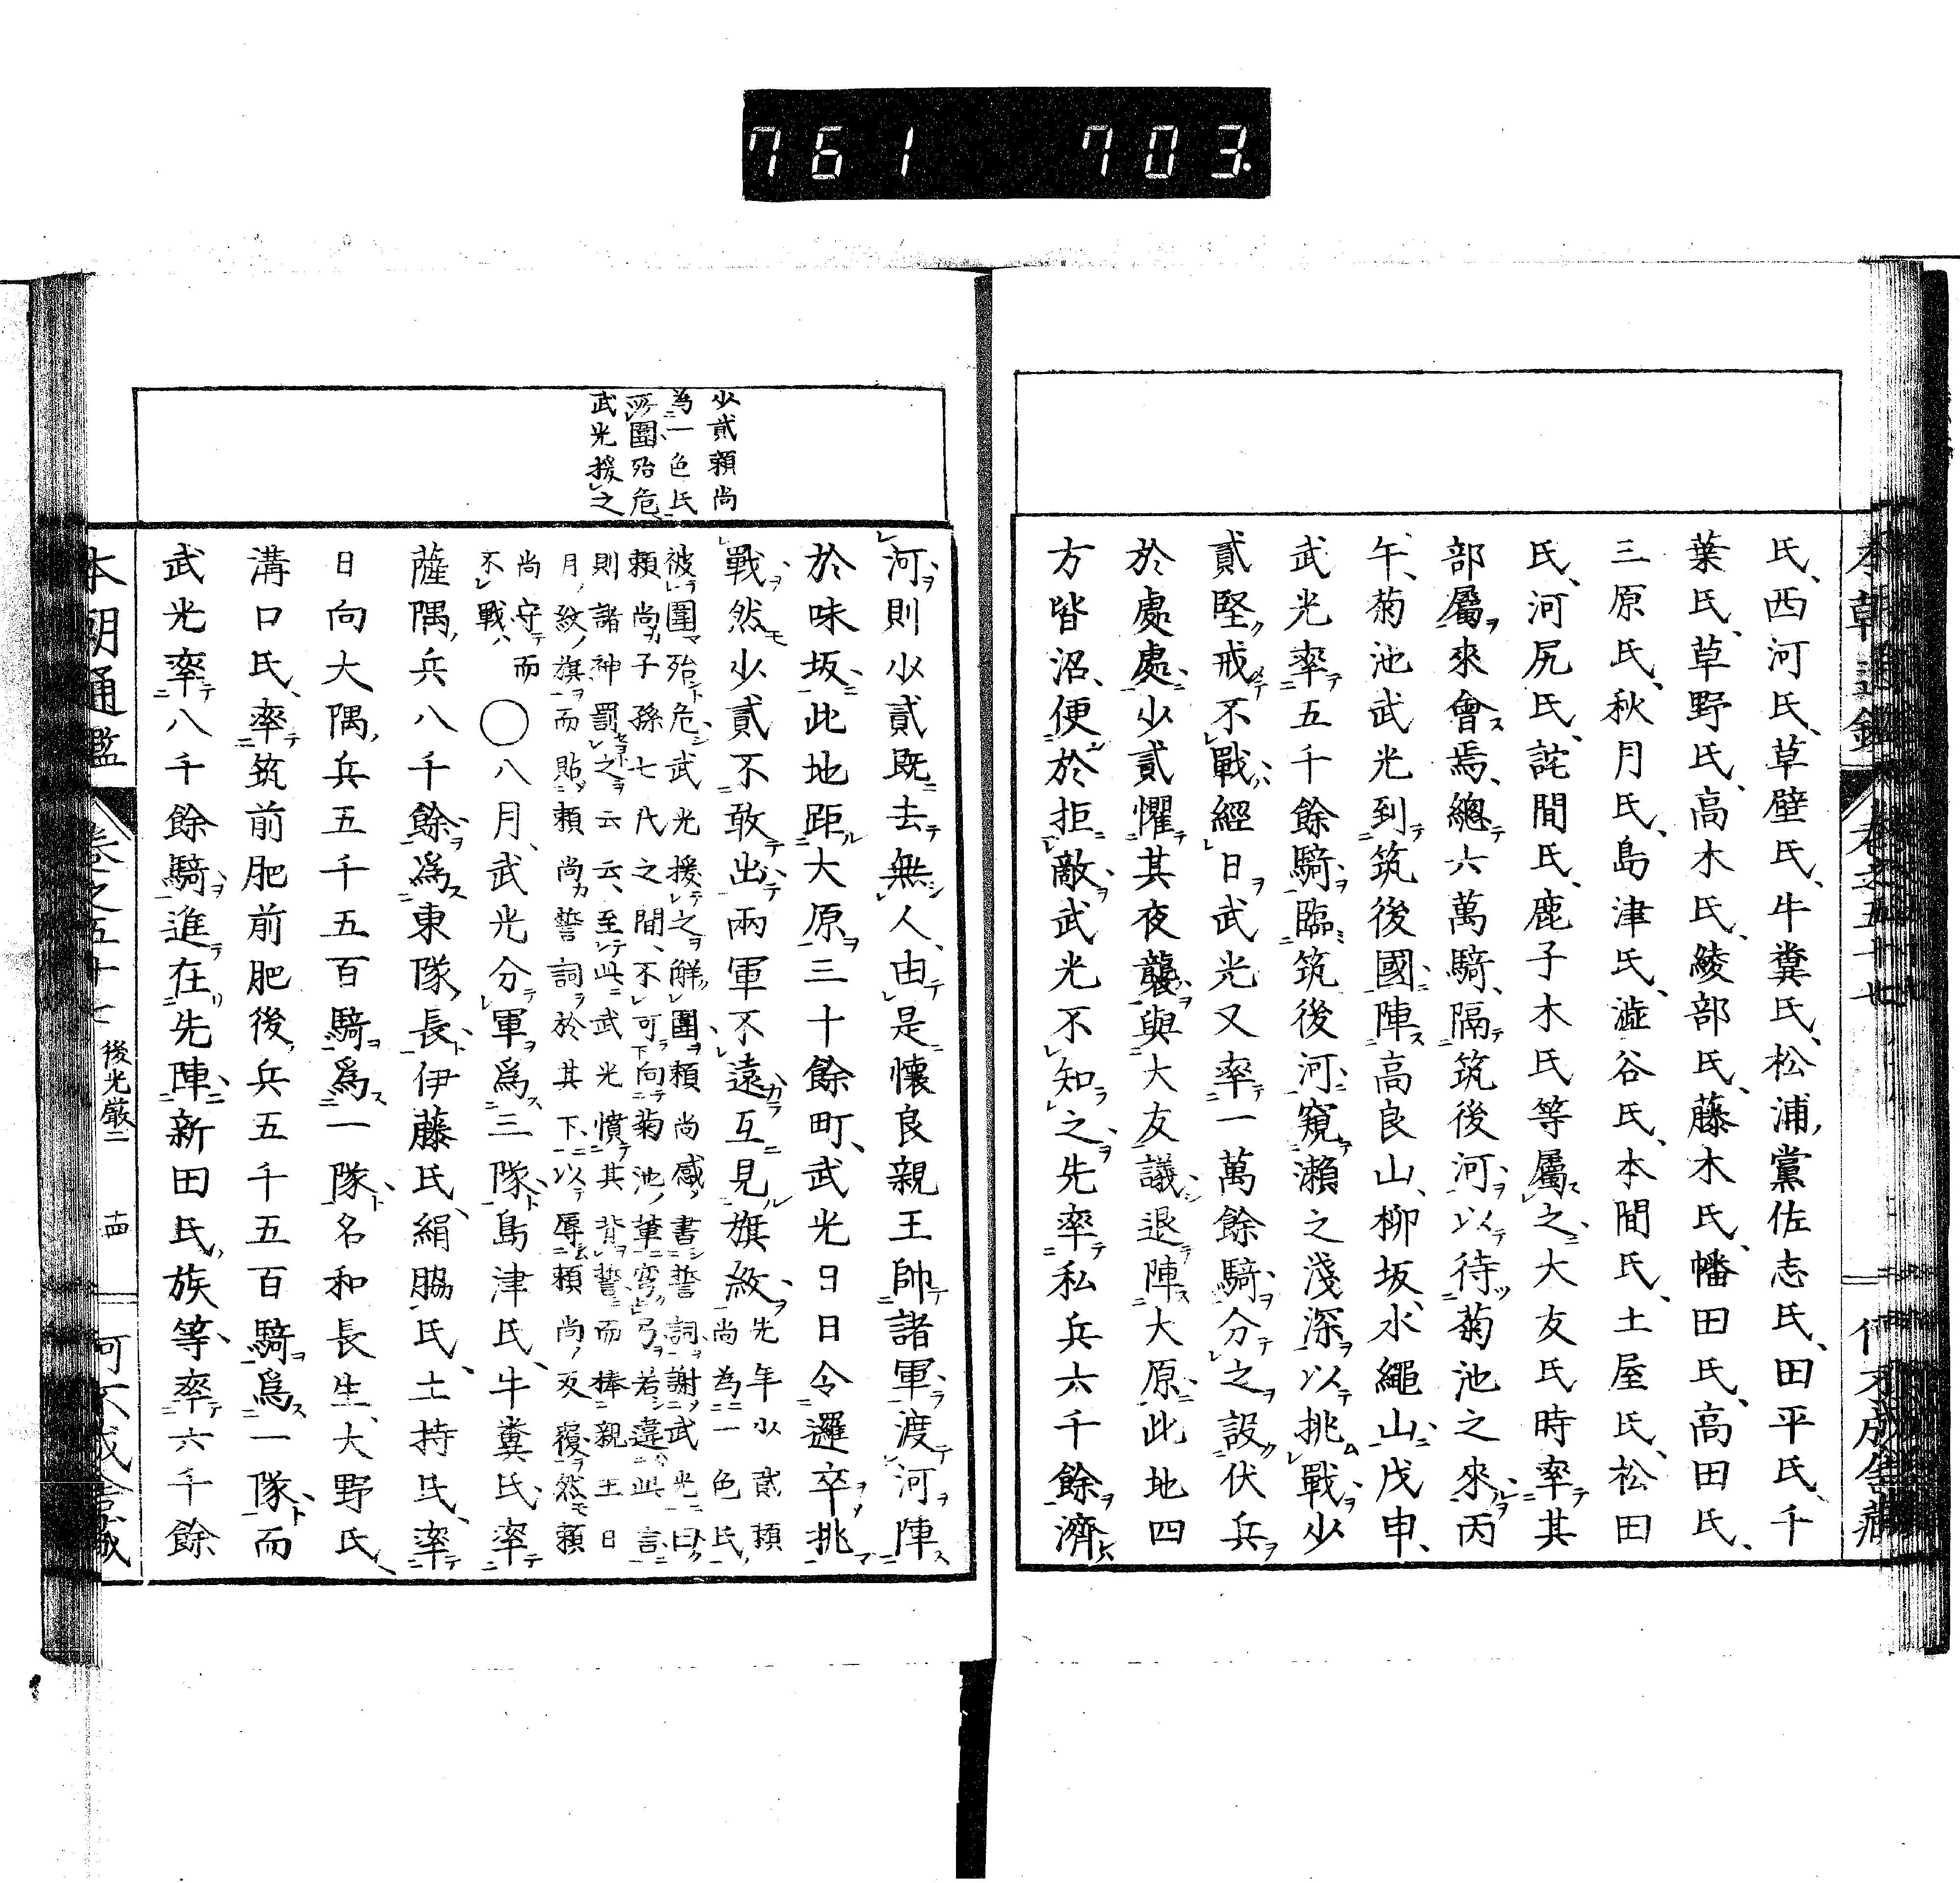 761 703.
氏、西河氏、草壁氏、牛糞氏、松浦黨佐志氏、田平氏、千
葉氏、草野氏、高木氏、綾部氏、藤木氏、幡田氏、高田氏、
三原氏、秋月氏、島津氏、澁谷氏、本間氏、土屋氏、松田
氏、河尻氏、詫間氏、鹿子木氏等屬之、大友氏時率其
部屬來會焉、總六萬騎、隔筑後河以待菊池之來、丙
午、菊池武光到筑後國、陣高良山、柳坂、水繩山、戊申、
武光率五千餘騎、臨筑後河、窺瀨之淺深、以挑戰、少
貳堅戒不戰、經日武光又率一萬餘騎、分之設伏兵
於處處、少貳懼其夜襲、與大友議、退陣大原、此地四
方皆沼、便於拒敵、武光不知之、先率私兵六千餘濟
河、則少貳既去無人、由是懷良親王帥諸軍、渡河陣
於味坂、此地距大原三十餘町、武光日日令邏卒挑
戰、然少貳不敢出、兩軍不遠、互見旗紋、先年少貳賴尚為一色氏
被圍殆危、武光援之解圍、賴尚感書誓詞、謝武光曰、
賴尚子孫七代之間、不可向菊池筆彎弓、若違此言
則諸神罰之云云、至此武光憤其背誓、而捧親王日
月紋旗、而貼賴尚誓詞於其下、以辱賴尚、反覆、然賴
尚守而
不戰
○八月、武光分軍爲三隊、島津氏、牛糞氏、率
薩隅兵八千餘、爲東隊長、伊藤氏、絹脇氏、土持氏、率
日向大隅兵五千五百騎、爲一隊、名和長生、大野氏、
溝口氏、率筑前肥前肥後兵五千五百騎、爲一隊、而
武光率八千餘騎、進在先陣、新田氏族等、率六千餘
少貳賴尚
為一色氏
所圍殆危
武光援之
本朝通鑑 卷之五十七 後光嚴二 十四